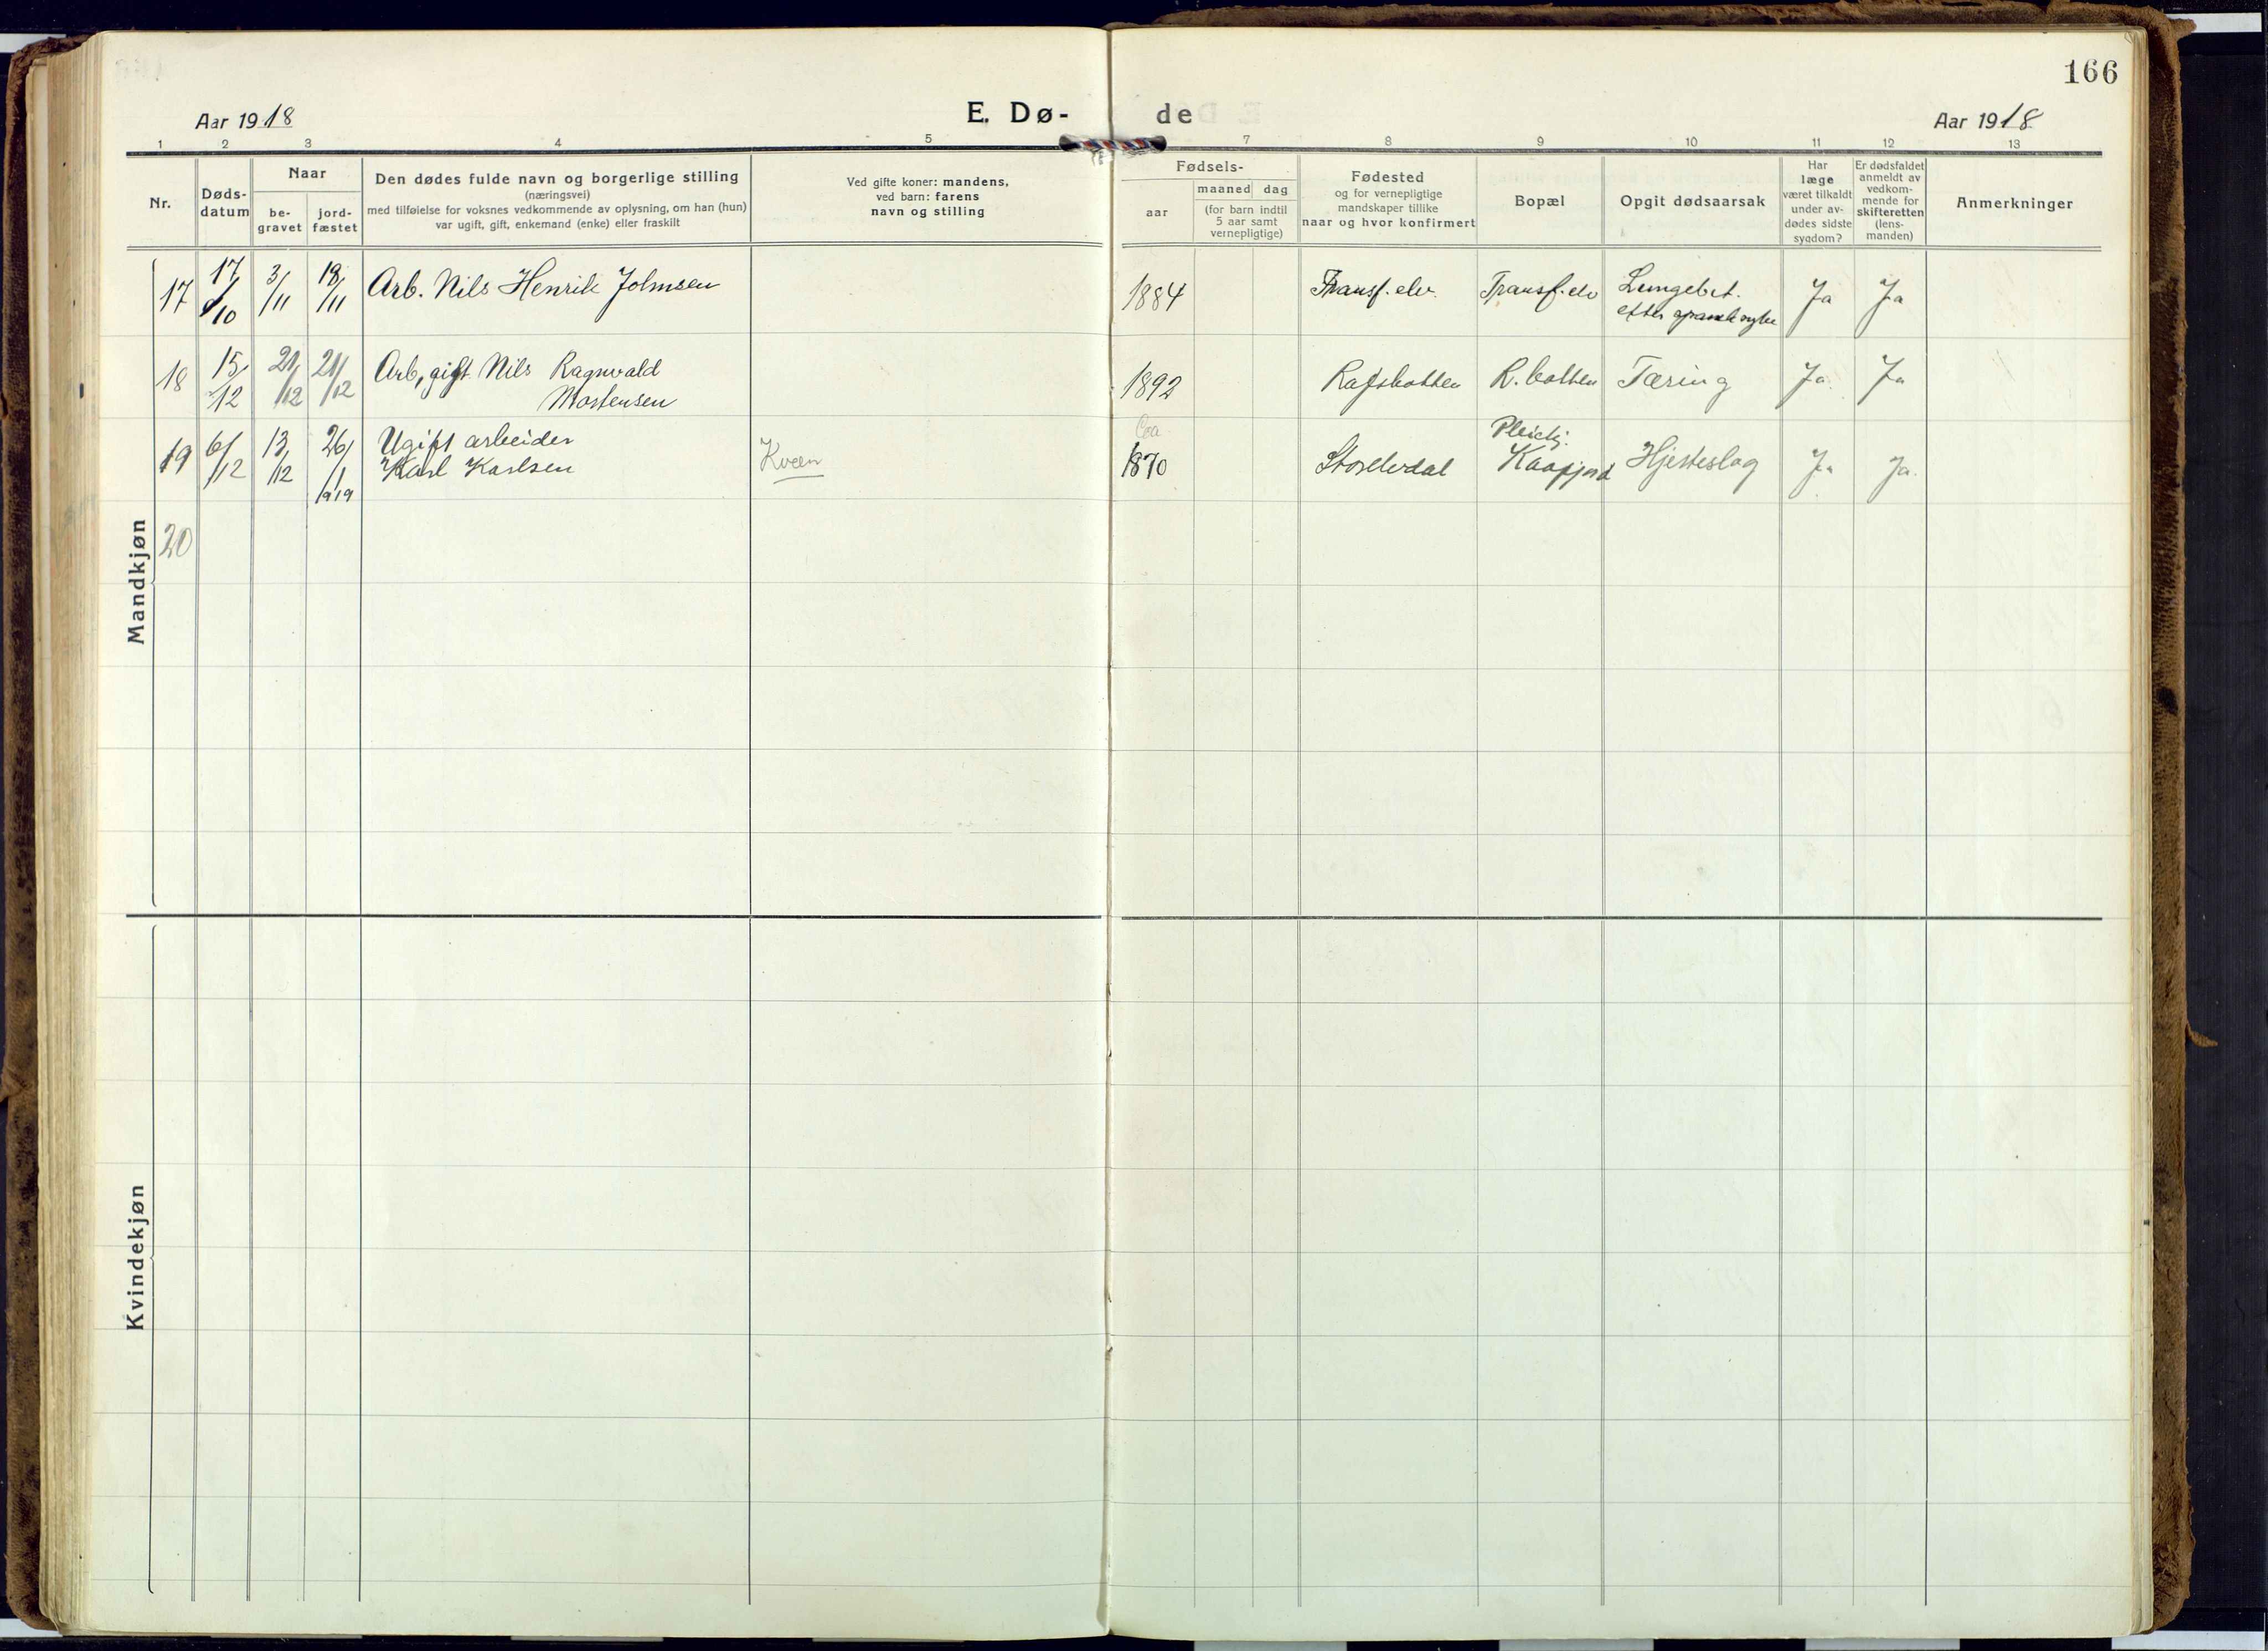 166
Aar 1918
E. Dø-
de
Aar 1918
1 2 3 4 5 7 8 9 10 11 12 13
Nr.
Døds-
datum
Naar
be-
gravet
jord-
fæstet
Den dødes fulde navn og borgerlige stilling
(næringsvei)
med tilføielse for voksnes vedkommende av oplysning, om han (hun)
var ugift, gift, enkemand (enke) eller fraskilt
Ved gifte koner: mandens,
ved barn: farens
navn og stilling
Fødsels-
aar
maaned dag
(for barn indtil
5 aar samt
vernepligtige)
Fødested
og for vernepligtige
mandskaper tillike
naar og hvor konfirmert
Bopæl
Opgit dødsaarsak
Har
læge
været tilkaldt
under av-
dødes sidste
sygdom?
Er dødsfaldet
anmeldt av
vedkom-
mende for
skifteretten
(lens-
manden)
Anmerkninger
Mandkjøn
17 17/10 3/11 18/11 Arb. Nils Henrik Johnsen 1884 Transf. elv. Transf. elv Lungebet. Ja Ja
efter spansk syke
18 15/12 21/12 21/12 Arb, gift Nils Ragnvald 1892 Rafsbotten R.botten Tæring Ja Ja
Mortensen
19 6/12 13/12 26/1 1919 Ugift arbeider
Karl Karlsen Kvæn 1870 Storelvdal Kaafjord Hjerteslag Ja Ja.
20
Kvindekjøn